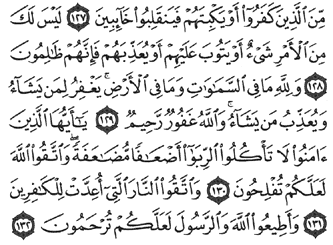 مِّنَ ٱلَّذِينَ كَفَرُوٓا۟ أَوْ يَكْبِتَهُمْ فَيَنقَلِبُوا۟ خَآئِبِينَ ١٢٧ لَيْسَ لَكَ
مِنَ ٱلْأَمْرِ شَىْءٌ أَوْ يَتُوبَ عَلَيْهِمْ أَوْ يُعَذِّبَهُمْ فَإِنَّهُمْ ظَٰلِمُونَ
١٢٨ وَلِلَّهِ مَا فِى ٱلسَّمَٰوَٰتِ وَمَا فِى ٱلْأَرْضِ ۚ يَغْفِرُ لِمَن يَشَآءُ
وَيُعَذِّبُ مَن يَشَآءُ ۚ وَٱللَّهُ غَفُورٌ رَّحِيمٌ ١٢٩ يَٰٓأَيُّهَا ٱلَّذِينَ
ءَامَنُوا۟ لَا تَأْكُلُوا۟ ٱلرِّبَوٰٓا۟ أَضْعَٰفًا مُّضَٰعَفَةً ۖ وَٱتَّقُوا۟ ٱللَّهَ
لَعَلَّكُمْ تُفْلِحُونَ ١٣٠ وَٱتَّقُوا۟ ٱلنَّارَ ٱلَّتِىٓ أُعِدَّتْ لِلْكَٰفِرِينَ
١٣١ وَأَطِيعُوا۟ ٱللَّهَ وَٱلرَّسُولَ لَعَلَّكُمْ تُرْحَمُونَ ١٣٢